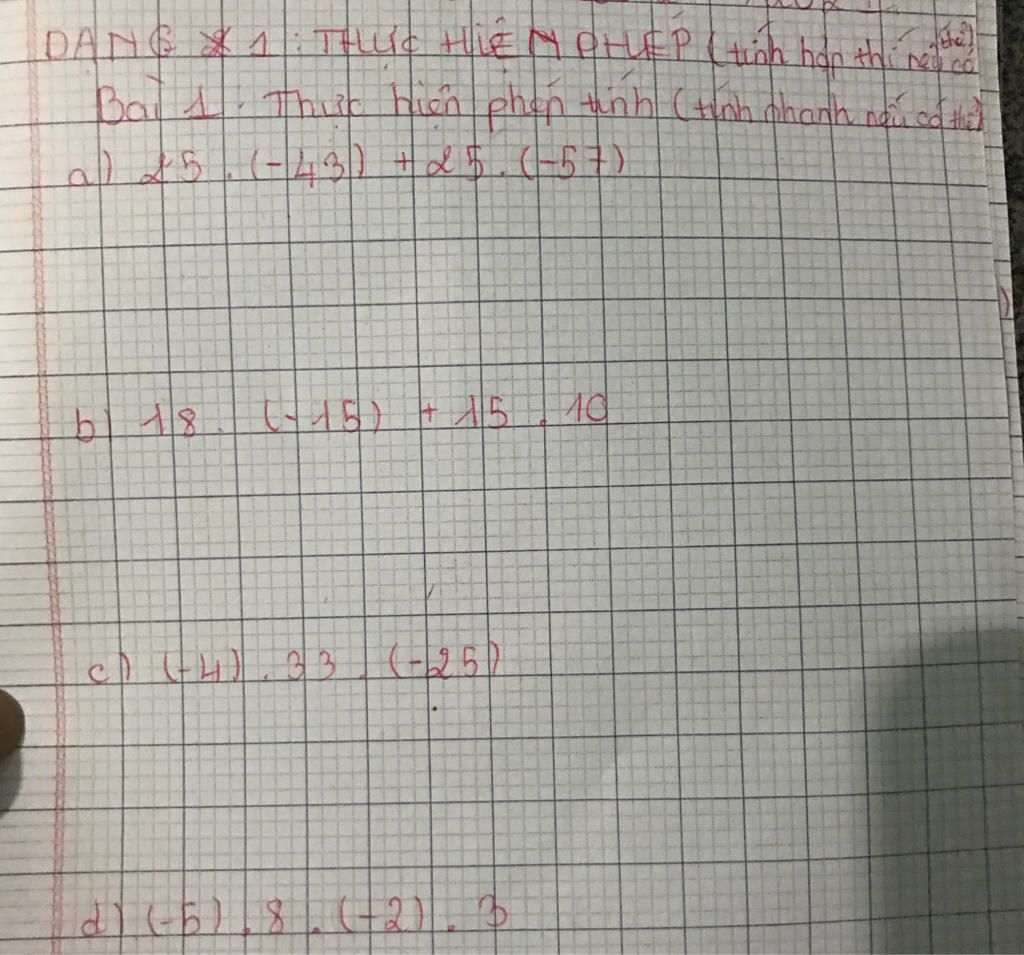 DẠNG 1: THỰC HIỆN PHÉP (tính hợp thí nếu có thể)
Bài 1: Thực hiện phép tính (tính nhanh nếu có thể)
a) 25 . (-43) + 25 . (-57)
b) 18 . (-15) + 15 . 10
c) (-4) . 33 . (-25)
d) (-5) . 8 . (-2) . 3